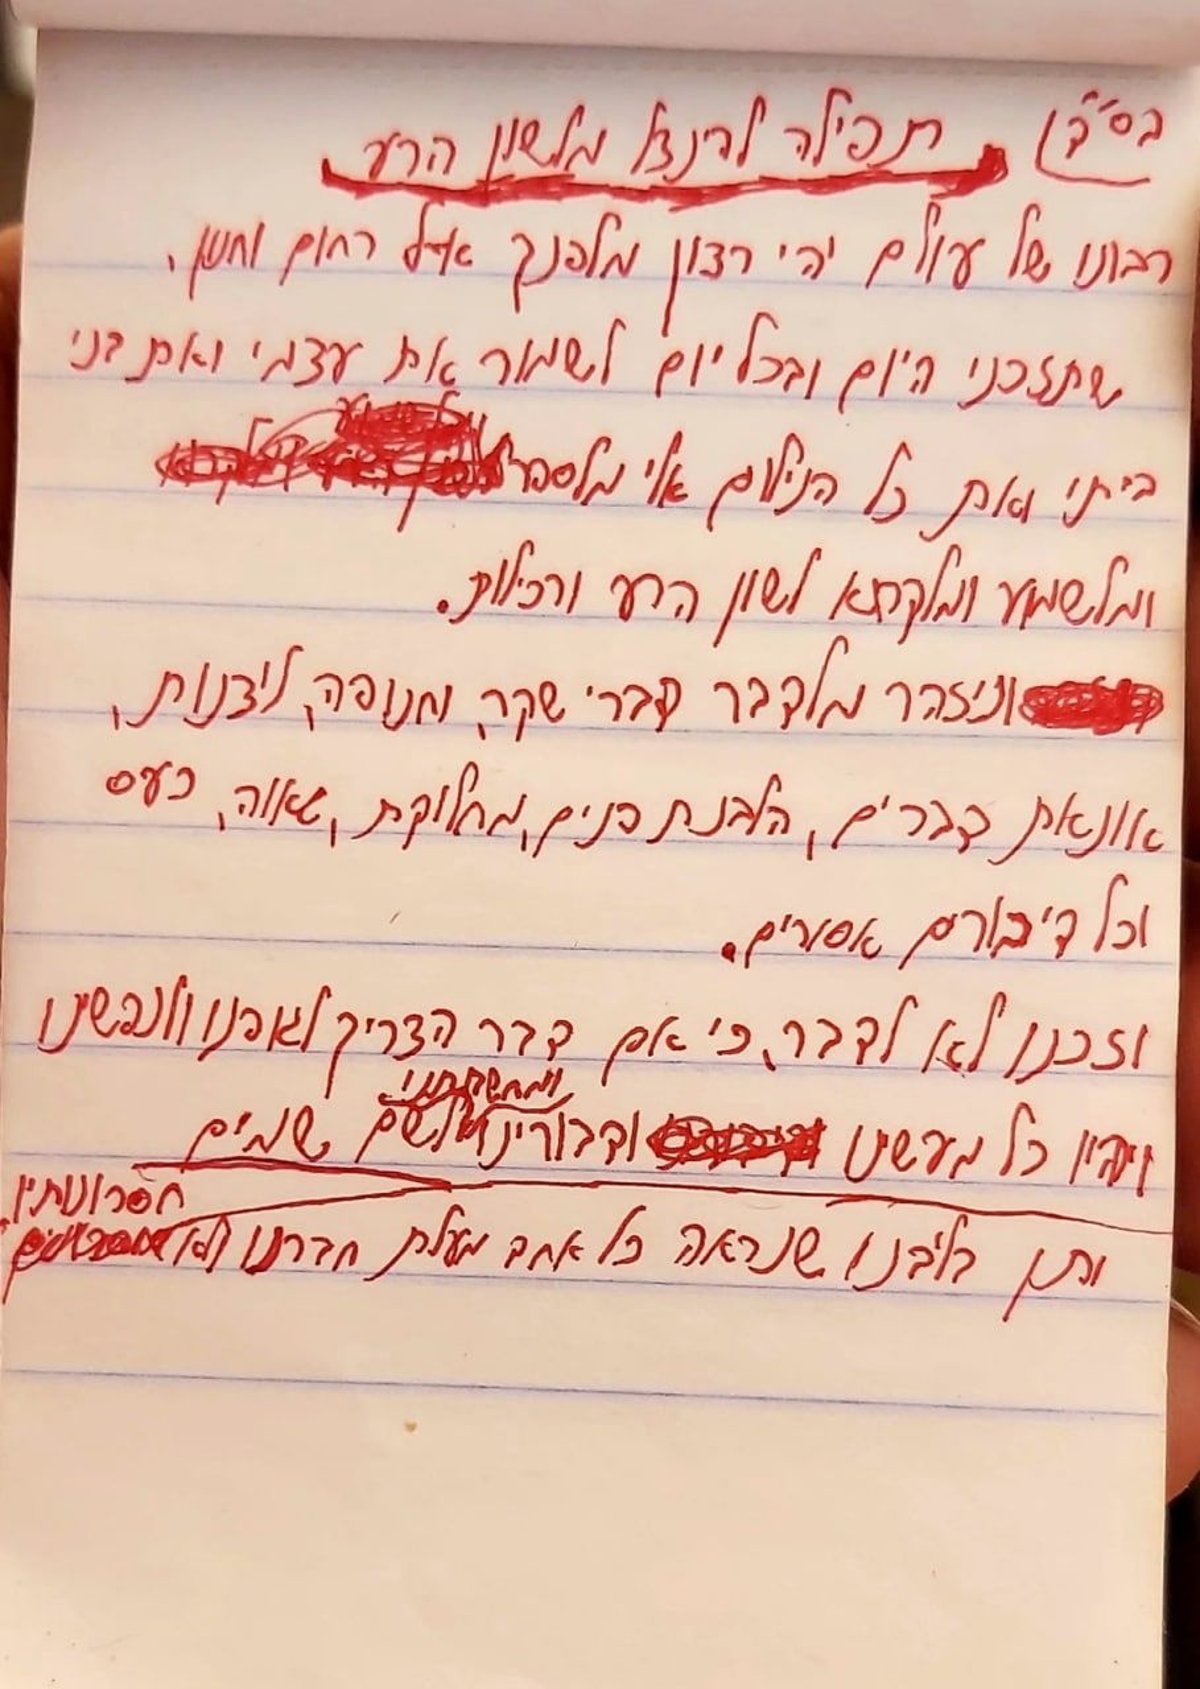 בס"ד תפילה להינצל מלשון הרע
רבונו של עולם יהי רצון מלפנך א-ל רחום וחנון,
שתזכני היום ובכל יום לשמור את עצמי ואת בני
ביתי ואת כל הנילוים אלי מלספר
ומלשמוע ומלקרוא לשון הרע ורכילות.
וניזהר מלדבר דברי שקר, וחנופה, ליצנות,
אונאת דברים, הלבנת פנים, מחלוקת, גאווה, כעס
וכל דיבורים אסורים.
וזכנו לא לדבר, כי אם דבר הצריך לגופנו ולנפשינו
ומחשבתנו
ויהיו כל מעשינו ודבורינו לשם שמים
חסרונותיו
ותן בליבנו שנראה כל אחד מעלת חברנו ולא